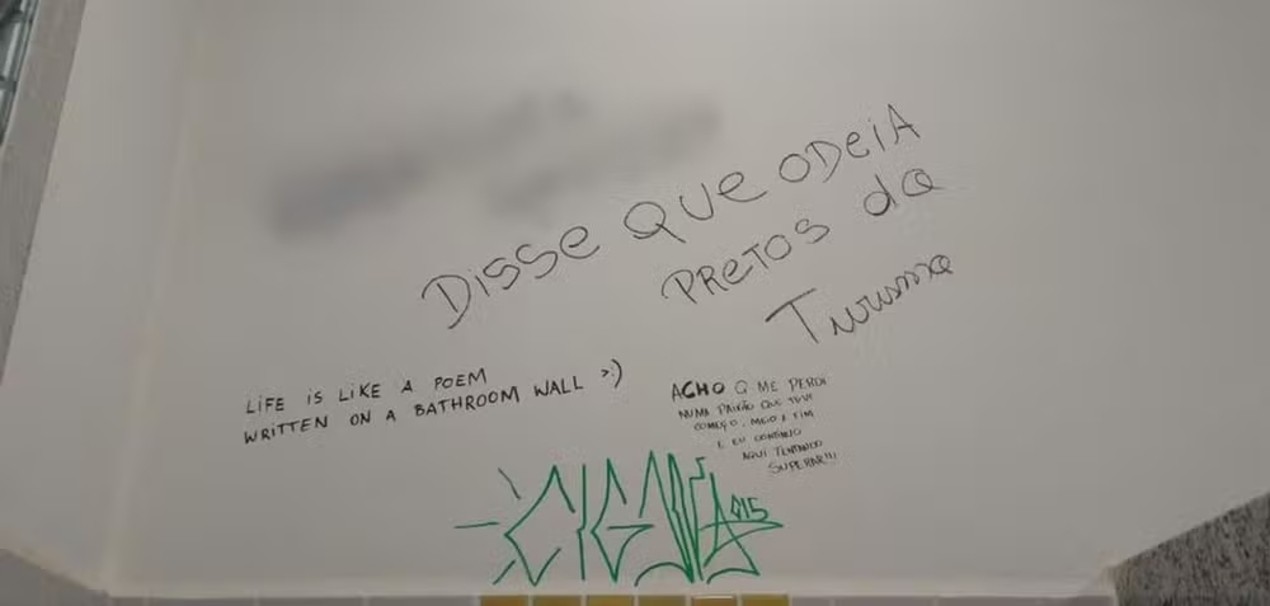 Disse Que ODeiA
PReTOS da
Turma
LiFE iS LiKE A POEM
WRITTEN ON A BATHROOM WALL >:)
ACHO Q ME PERDi
NUMA PAIXÃO QUE TUVE
COMEÇO, MEIO E FIM
E EU CONTINUO
AQUI TENTANDO
SUPERAR!!!